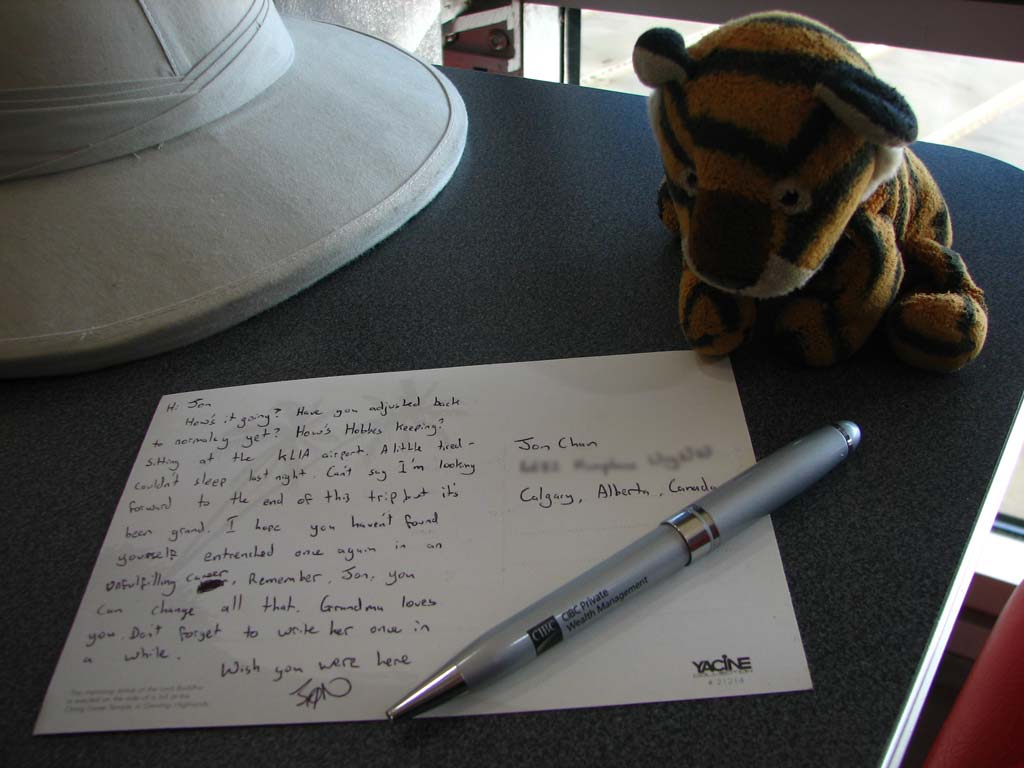 Hi Jon
How's it going? Have you adjusted back
to normalcy yet? How's Hobbes Keeping?
Sitting at the KLIA airport. A little tired -
couldn't sleep last night. Can't say I'm looking
forward to the end of this trip but it's
been grand. I hope you haven't found
yourself entrenched once again in an
unfulfilling career. Remember, Jon, you
can change all that. Grandma loves
you. Don't forget to write her once in
a while.
Wish you were here
Jon
Jon Chan
Calgary, Alberta, Canada
CIBC
CIBC Private
Wealth Management
YACINE
# 21214